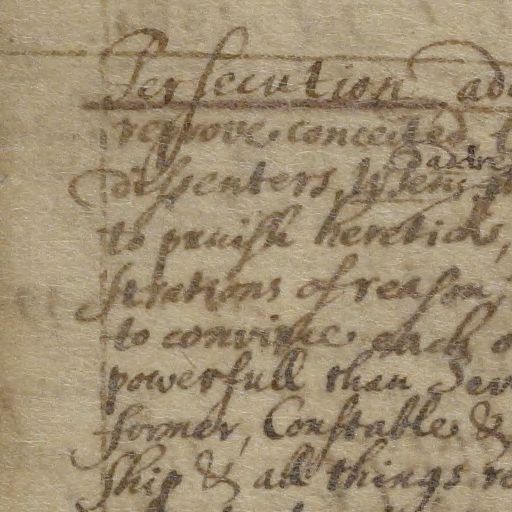 Persecution
reprove conceited
dissenters,
to punish heretick,
strations of reason,
to convince each
powerfull than
former, Constable &
ship & all things